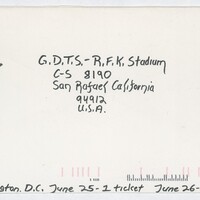 G.D.T.S.-R.F.K. Stadium
C-S 8190
San Rafael California
94912
U.S.A.
gton. D.C. June 25-1 ticket June 26-